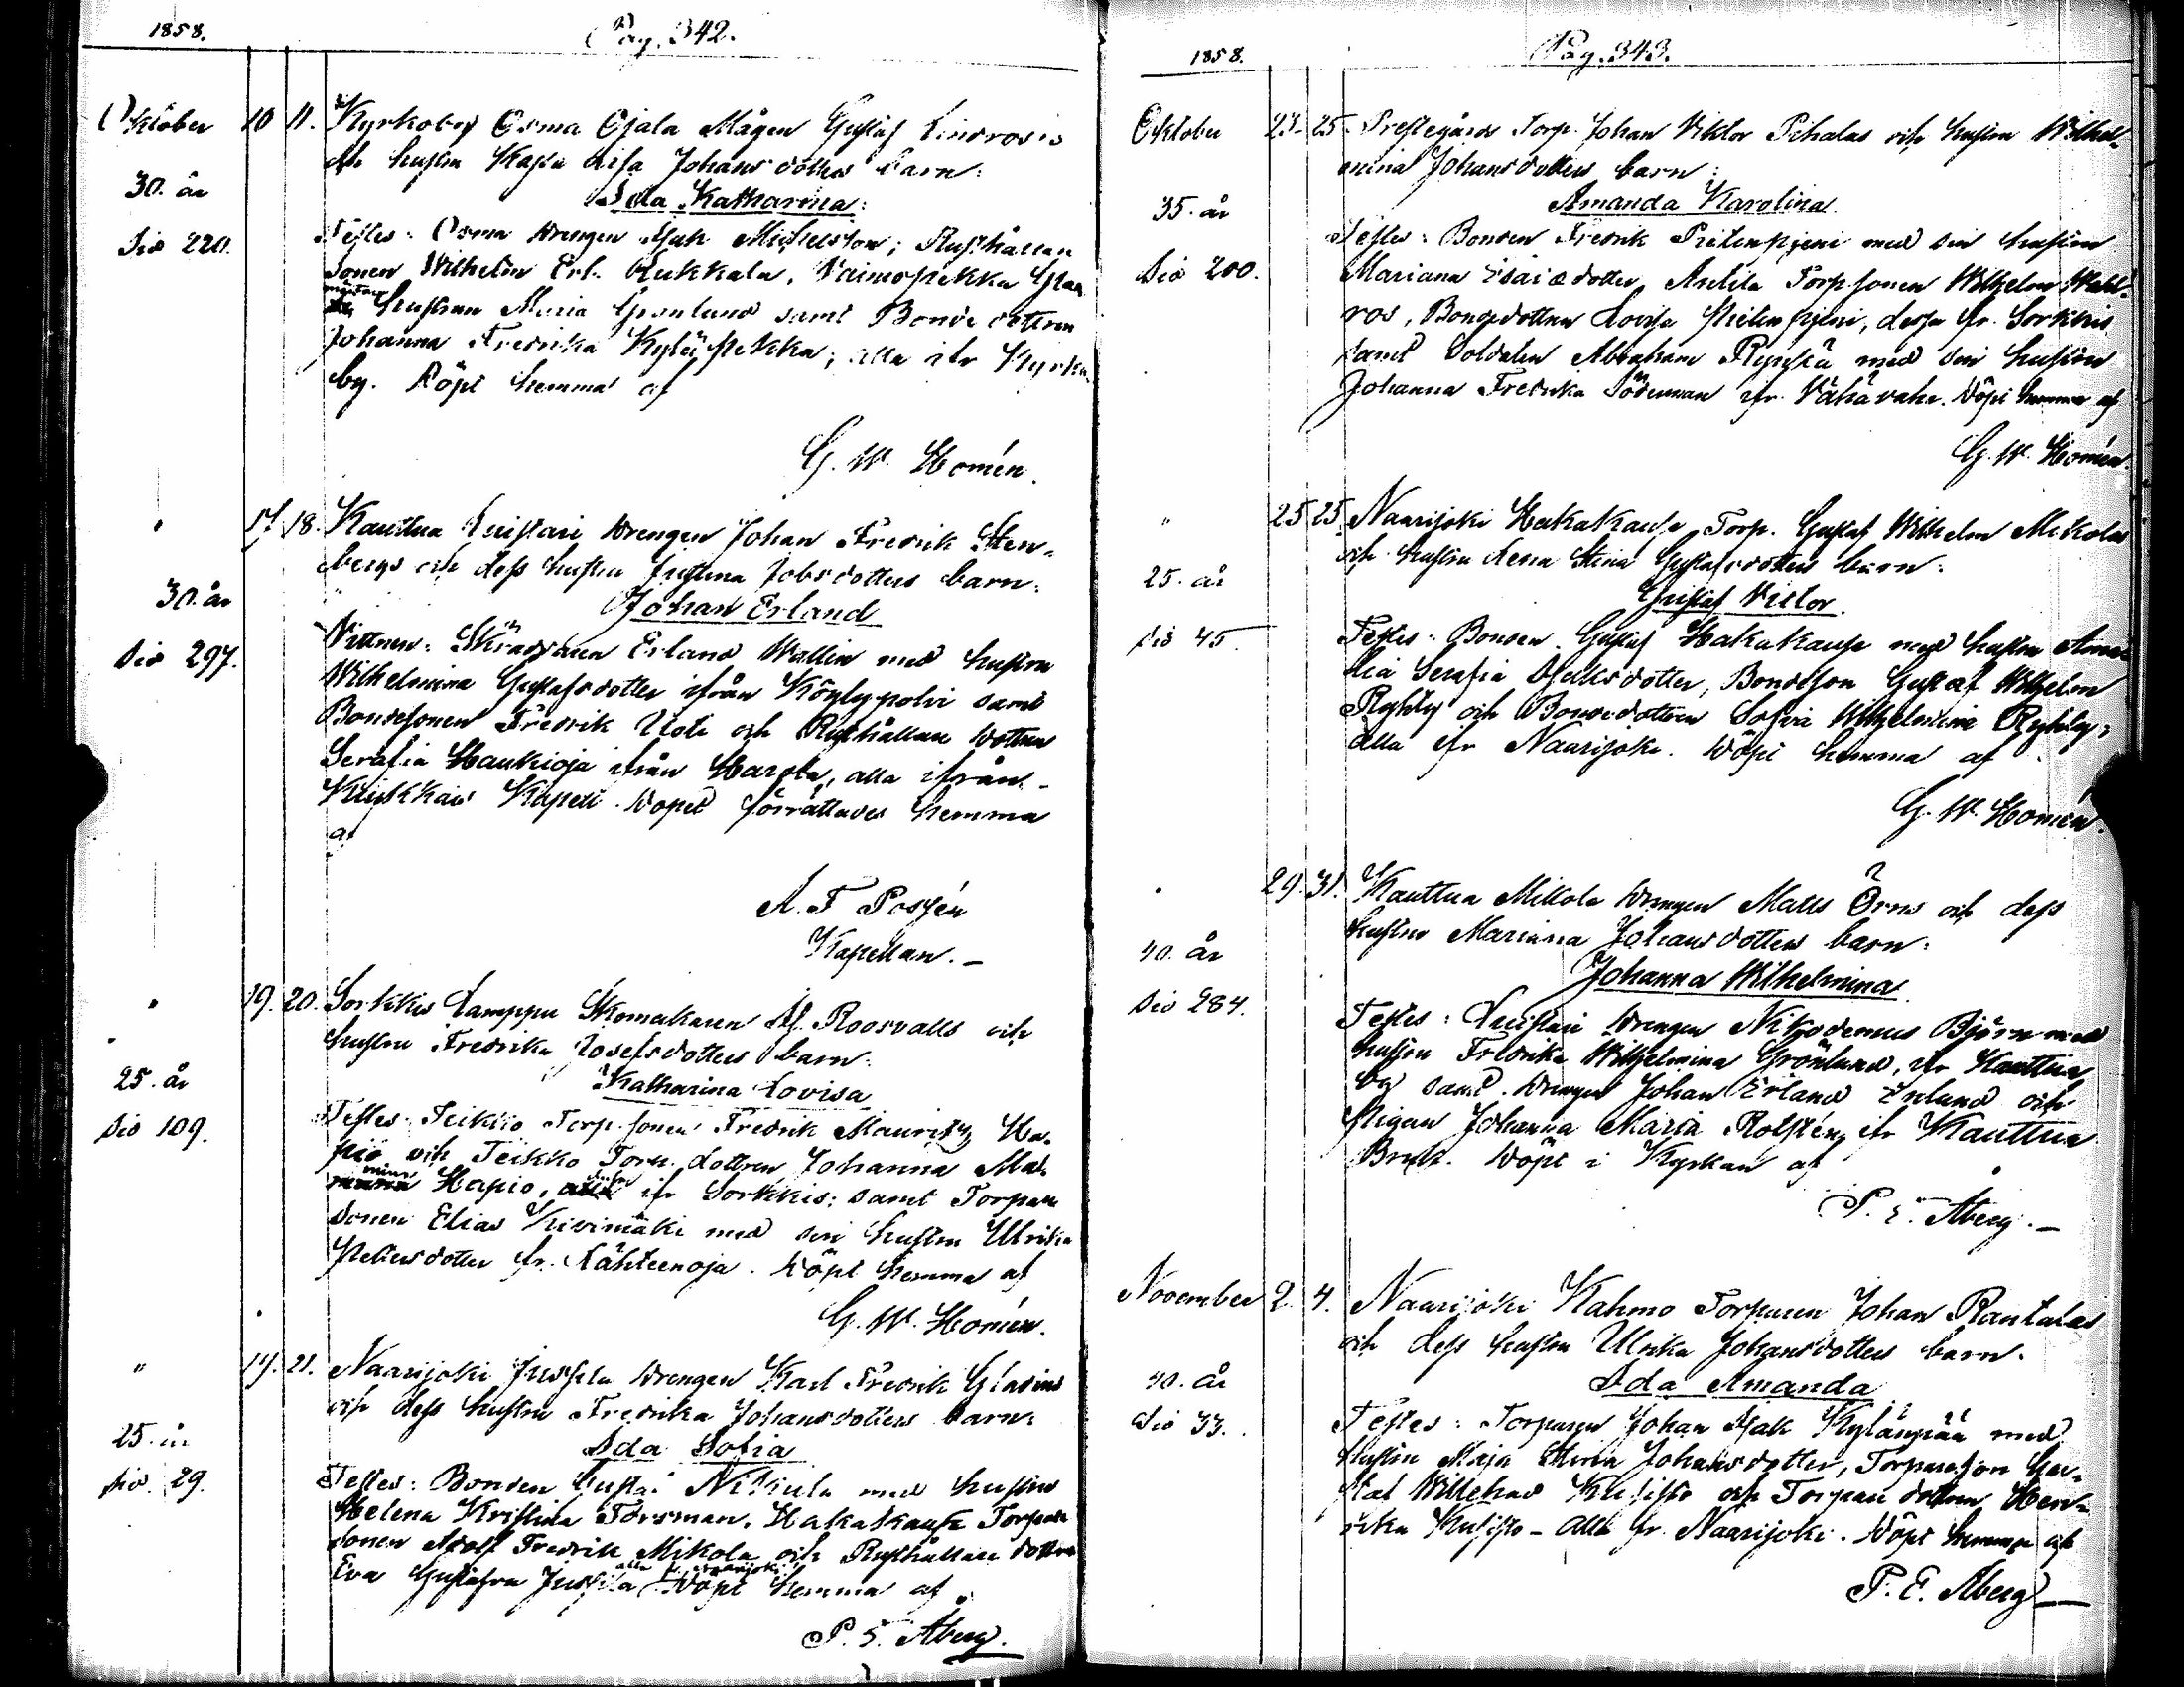 1858.
Pag. 342.
Oktober 10 11. Kyrkoby Osma Ojala Mågen Gustaf Lindroos
och hustru Kajsa Lisa Johansdotters barn:
30. år
Ida Katharina:
Sid 220.
Testes: Osma drengen Isak Michelsson; Rusthållare
sonen Wilhelm Erl. Kukkala, Vaimopekka
hustrun Maria Grönlund samt Bonde dottren
Johanna Fredrika Kyläpekka; alla ifr Kyrko
by. Döpt hemma af
G. W. Homén.
" 17. 18. Kauttua Luistari drengen Johan Fredrik Sten-
bergs och dess hustru Justina Jobsdotters barn:
30. år
Johan Erland
Sid 297.
Vittnen: Skräddaren Erland Wallin med hustru
Wilhelmina Gustafsdotter ifrån Köylypolvi samt
Bondesonen Fredrik Uoti och Rusthållare dottren
Serafia Haukioja ifrån Harola, alla ifrån
Kapell. Dopet förrättades hemma
af
A. F. Possén
Kapellan. -
" 19. 20. Sorkkis Lamppu Skomakaren Roosvalls och
hustru Fredrika Josefsdotters barn:
25. år
Katharina Lovisa
Sid 109.
Testes: Teikko Torp. sonen Fredrik Mauritz Ha-
pio och Teikko Torp. dottren Johanna
mina Hapio, ifr Sorkkis; samt Torpare
sonen Elias Kivimäki med sin hustru Ulrika
Pettersdotter fr. Lähteenoja. Döpt hemma af
G. W. Homén.
" 19. 21. Naarijoki Jussila drengen Karl Fredrik
och dess hustru Fredrika Johansdotters barn:
25. år
Ida Sofia
Sid. 29.
Testes: Bonden Gustaf Nikula med hustru
Helena Kristina Forsman, Hakakaupe Torpare
sonen Adolf Fredrik Mikola och Rusthållare dottren
Eva Gustafva Jussila alla fr. Naarijoki Döpt hemma af
P. E. Åberg.
1858.
Pag. 343.
Oktober 23. 25. Prestegårds Torp. Johan Viktor Pihalas och hustru Wilhel-
mina Johansdotters barn:
35. år
Amanda Karolina
Sid 200.
Testes: Bonden Fredrik Pietinpjeni med sin hustru
Mariana Esaiædotter, Anttila Torp sonen Wilhelm Wahl-
ros, Bondedottren Lovisa Pietinpjeni, dessa fr. Sorkkis
samt Soldaten Abraham med sin hustru
Johanna Fredrika Söderman ifr. Vähävaha. Döpt hemma af
G. W. Homén.
" 25 25. Naarijoki Hakakaupe Torp. Gustaf Wilhelm Mikolas
och hustru Lena Stina Gustafsdotters barn:
25. år
Gustaf Victor.
Sid 45
Testes: Bonden Gustaf Hakakaupe med hustru Ama-
lia Serafia Isaksdotter, Bondeson Gustaf Wilhelm
Ryhty och Bondedottren Sofia Wilhelmina Ryhty;
alla ifr Naarijoki. Döpt hemma af
G. W. Homén.
" 29. 31. Kauttua Mikkola drengen Matts Örns och dess
hustru Marianna Johansdotters barn:
40. år
Johanna Wilhelmina
Sid 284.
Testes: Luistari drengen Nikodemus Björn med
hustru Fredrika Wilhelmina Grönlund, ifr Kauttua
by samt drengen Johan Erland Enlund och
Pigan Johanna Maria Rolstén, ifr Kauttua
Bruk. Döpt i Kyrkan af
P. E. Åberg. -
November 2. 4. Naarijoki Kahmo Torparen Johan Rantalas
och dess hustru Ulrika Johansdotters barn:
40. år
Ida Amanda
Sid 33.
Testes: Torparen Johan Isak Kylänpää med
hustru Maja Stina Johansdotter, Torpareson Gu-
staf Willehad Kujisto och Torpare dottren Hen-
rika Kujisto - alla fr. Naarijoki. Döpt hemma af
P. E. Åberg